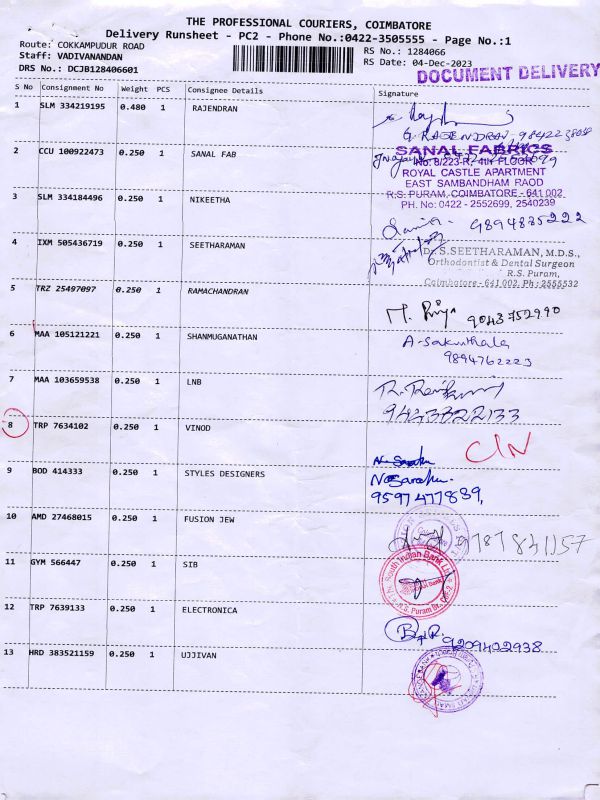 THE PROFESSIONAL COURIERS, COIMBATORE
Delivery Runsheet - PC2 - Phone No.:0422-3505555 - Page No.:1
Route: COKKAMPUDUR ROAD
RS No.: 1284066
Staff: VADIVANANDAN
RS Date: 04-Dec-2023
DRS No.: DCJB128406601
DOCUMENT DELIVERY
S No Consignment No Weight PCS Consignee Details Signature
1 SLM 334219195 0.480 1 RAJENDRAN
2 CCU 100922473 0.250 1 SANAL FAB
SANAL FABRICS
No: 8/223-R, 4th FLOOR
ROYAL CASTLE APARTMENT
EAST SAMBANDHAM RAOD
R.S. PURAM, COIMBATORE - 641 002
PH. No: 0422 - 2552699, 2540239
3 SLM 334184496 0.250 1 NIKEETHA
9894835222
4 IXM 505436719 0.250 1 SEETHARAMAN
Dr. S.SEETHARAMAN, M.D.S.,
Orthodontist & Dental Surgeon
R.S. Puram,
Coimbatore - 641 002, Ph : 2555532
5 TRZ 25497097 0.250 1 RAMACHANDRAN
9043752990
6 MAA 105121221 0.250 1 SHANMUGANATHAN
A-Sakunthala
9894762223
7 MAA 103659538 0.250 1 LNB
9443322133
8 TRP 7634102 0.250 1 VINOD
C/N
9 BOD 414333 0.250 1 STYLES DESIGNERS
9597477839,
10 AMD 27468015 0.250 1 FUSION JEW
9787831157
11 GYM 566447 0.250 1 SIB
South Indian Bank Ltd
R.S. Puram Br.
12 TRP 7639133 0.250 1 ELECTRONICA
9209402938
13 HRD 383521159 0.250 1 UJJIVAN